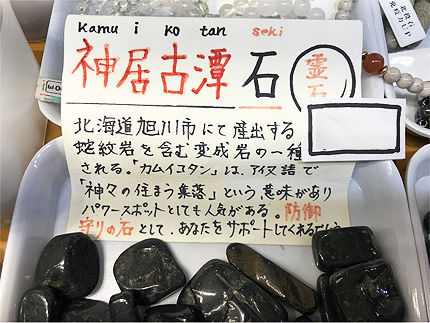 kamu i ko tan seki
神居古潭石
霊石
北海道旭川市にて産出する
蛇紋岩を含む変成岩の一種
される。「カムイコタン」は、アイヌ語で
「神々の住まう集落」という意味があり
パワースポットとしても人気がある。防御
守りの石として、あなたをサポートしてくれるでしょ
北投石
免疫力UP